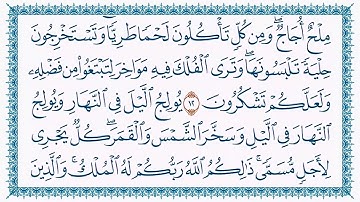 مِلْحٌ أُجَاجٌ ۖ وَمِن كُلٍّ تَأْكُلُونَ لَحْمًا طَرِيًّا وَتَسْتَخْرِجُونَ
حِلْيَةً تَلْبَسُونَهَا ۖ وَتَرَى الْفُلْكَ فِيهِ مَوَاخِرَ لِتَبْتَغُوا مِن فَضْلِهِ
وَلَعَلَّكُمْ تَشْكُرُونَ ١٢ يُولِجُ الَّيْلَ فِي النَّهَارِ وَيُولِجُ
النَّهَارَ فِي الَّيْلِ وَسَخَّرَ الشَّمْسَ وَالْقَمَرَ ۖ كُلٌّ يَجْرِي
لِأَجَلٍ مُّسَمًّى ۚ ذَٰلِكُمُ اللَّهُ رَبُّكُمْ لَهُ الْمُلْكُ ۚ وَالَّذِينَ